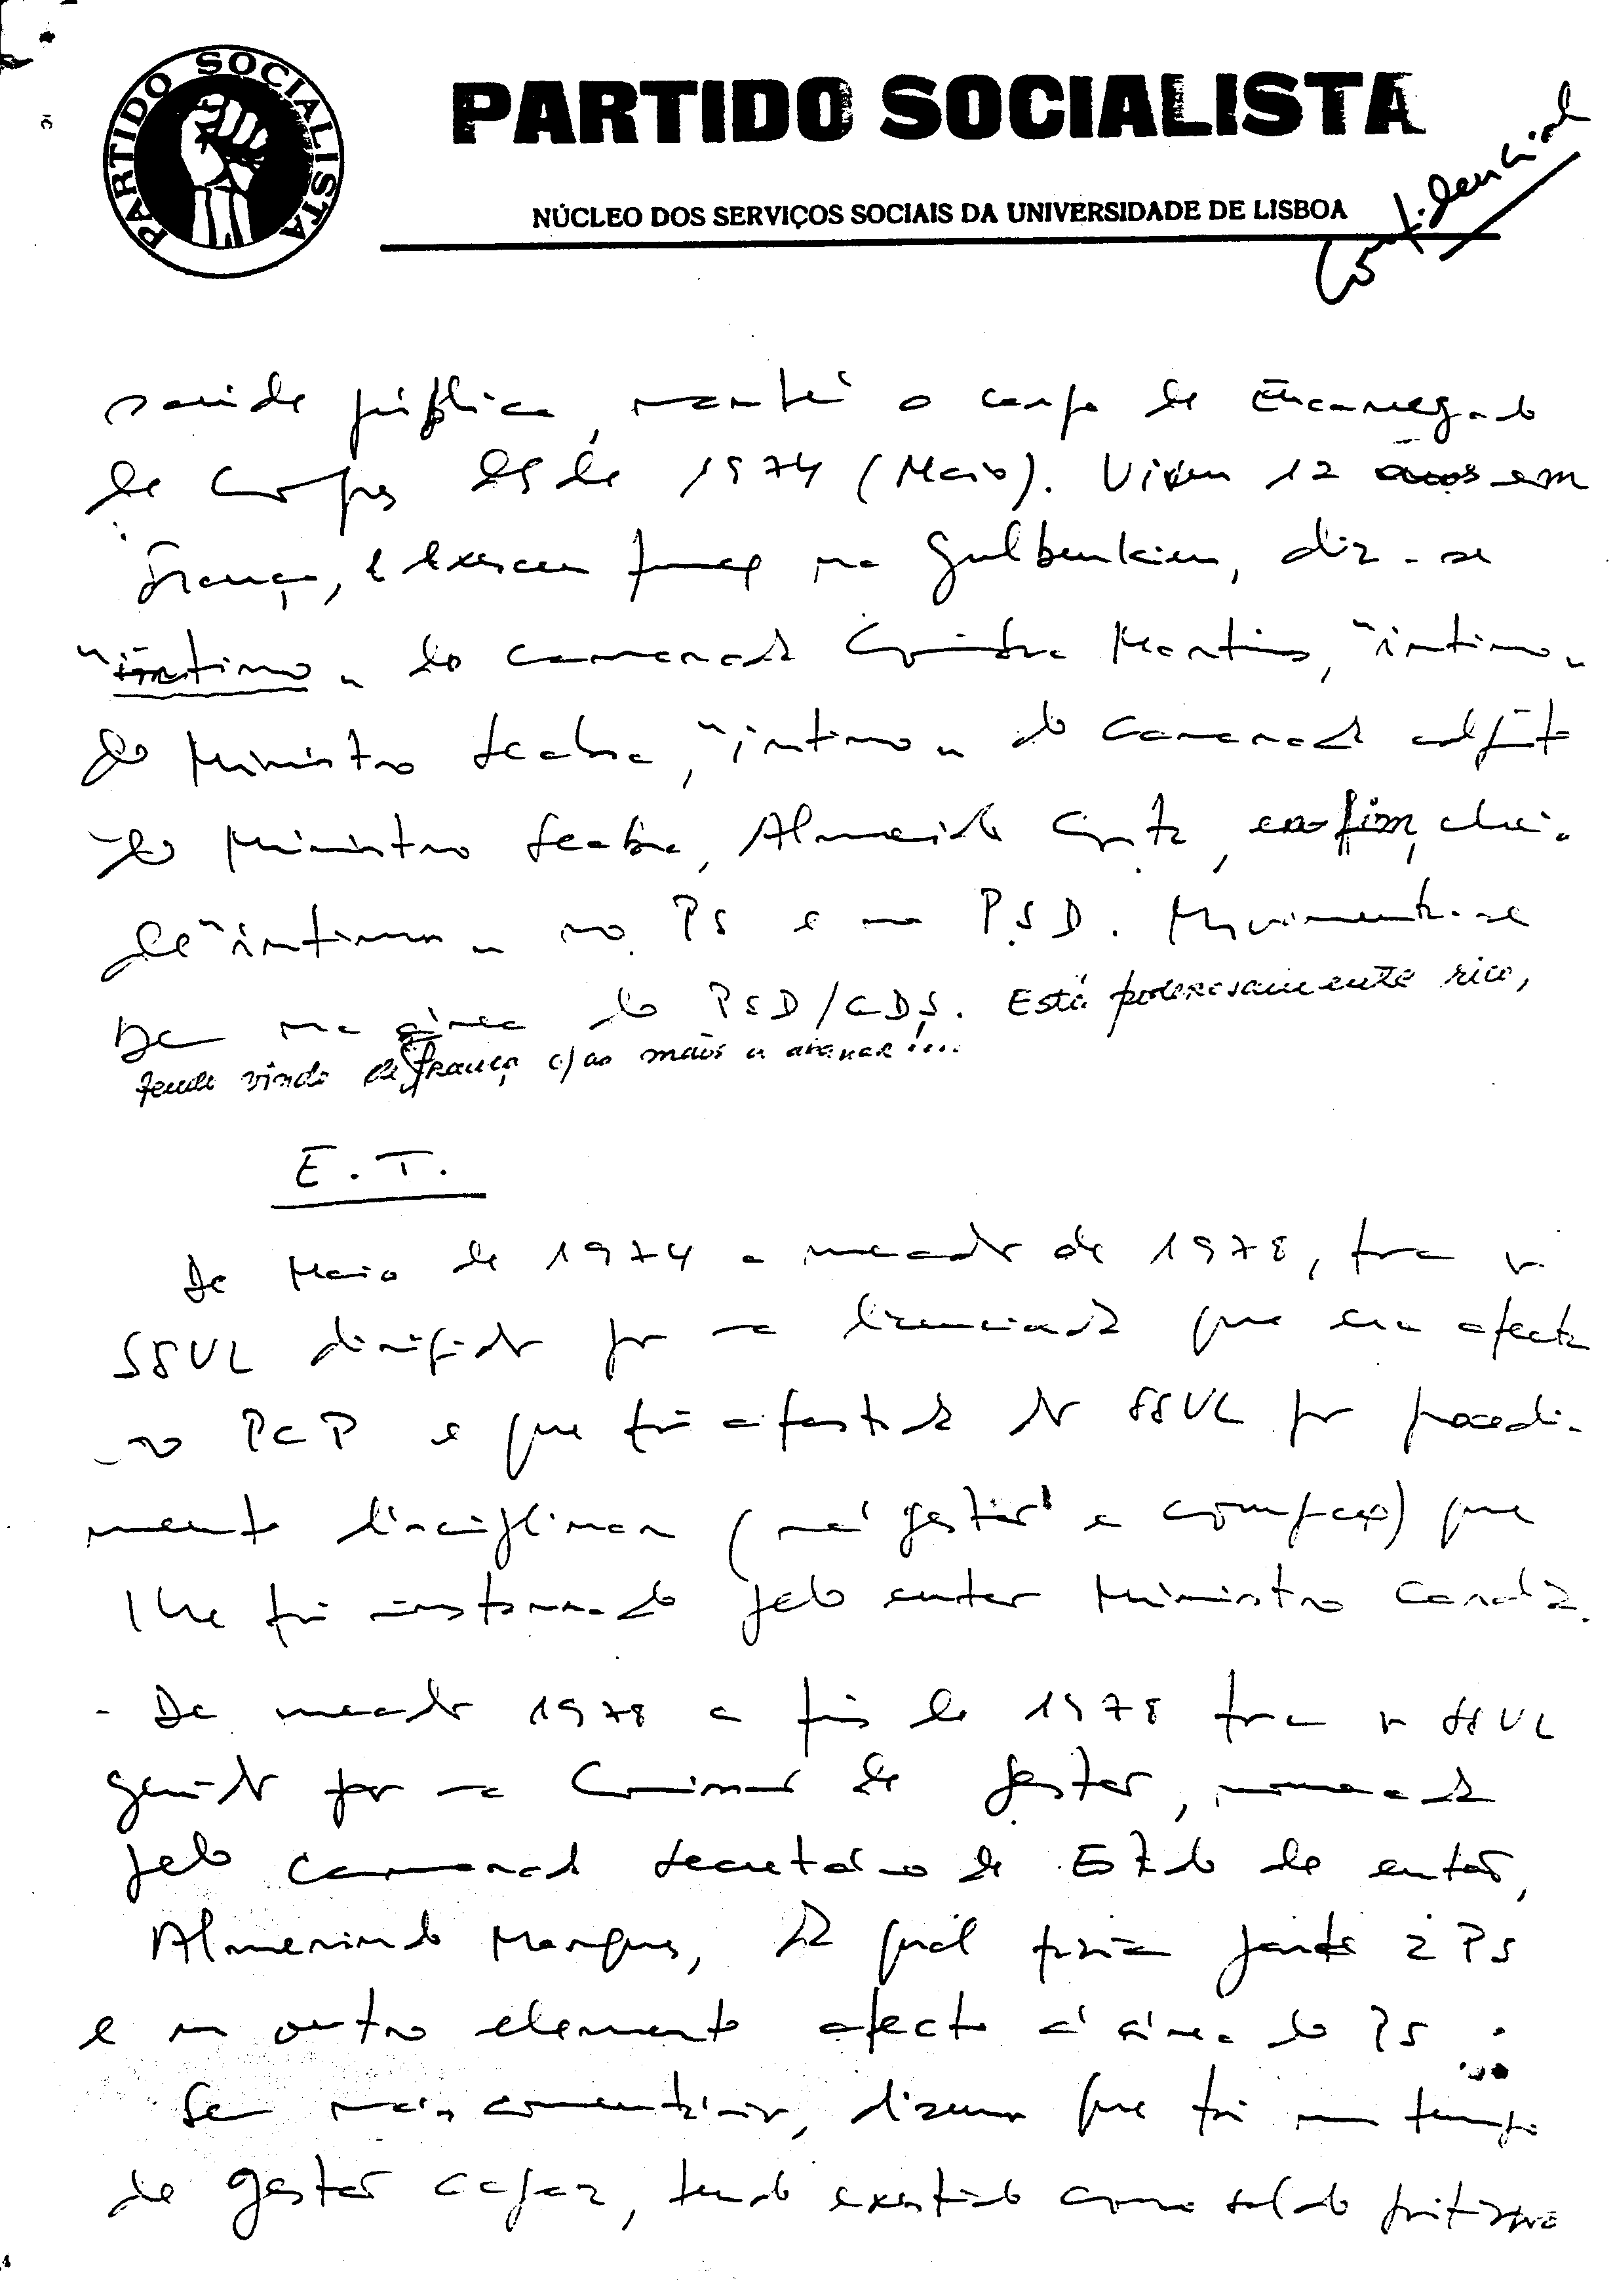 PARTIDO SOCIALISTA
PARTIDO SOCIALISTA
NÚCLEO DOS SERVIÇOS SOCIAIS DA UNIVERSIDADE DE LISBOA
Confidencial
saúde pública, mantém o cargo de Encarregado
de Compras desde 1974 (Maio). Viveu 12 anos em
França, e exerceu funções na Gulbenkian, diz-se
"íntimo" do camarada Coimbra Martins, "íntimo"
do Ministro Seabra, "íntimo" do camarada adjunto
do Ministro Seabra, Almeida Costa, enfim, cheio
de "íntimos" no PS e no PSD. Movimenta-se
bem na área do PSD/CDS. Está poderosamente rico,
tendo vindo de França c/ as mãos a abanar!...
E.T.
De Maio de 1974 a meados de 1978, foram os
SSUL dirigidos por uma licenciada que era afecta
ao PCP e que foi afastada dos SSUL por procedi-
mento disciplinar (má gestão e corrupção) que
lhe foi instaurado pelo então Ministro Cardia.
- De meados 1978 a fins de 1978 foram os SSUL
geridos por uma Comissão de gestão, nomeada
pelo camarada Secretário de Estado de então,
Almerindo Marques, da qual fazia parte 2 PS
e um outro elemento afecto à área do PS...
Sem mais comentários, dizemos que foi um tempo
de gestão capaz, tendo existido como saldo positivo